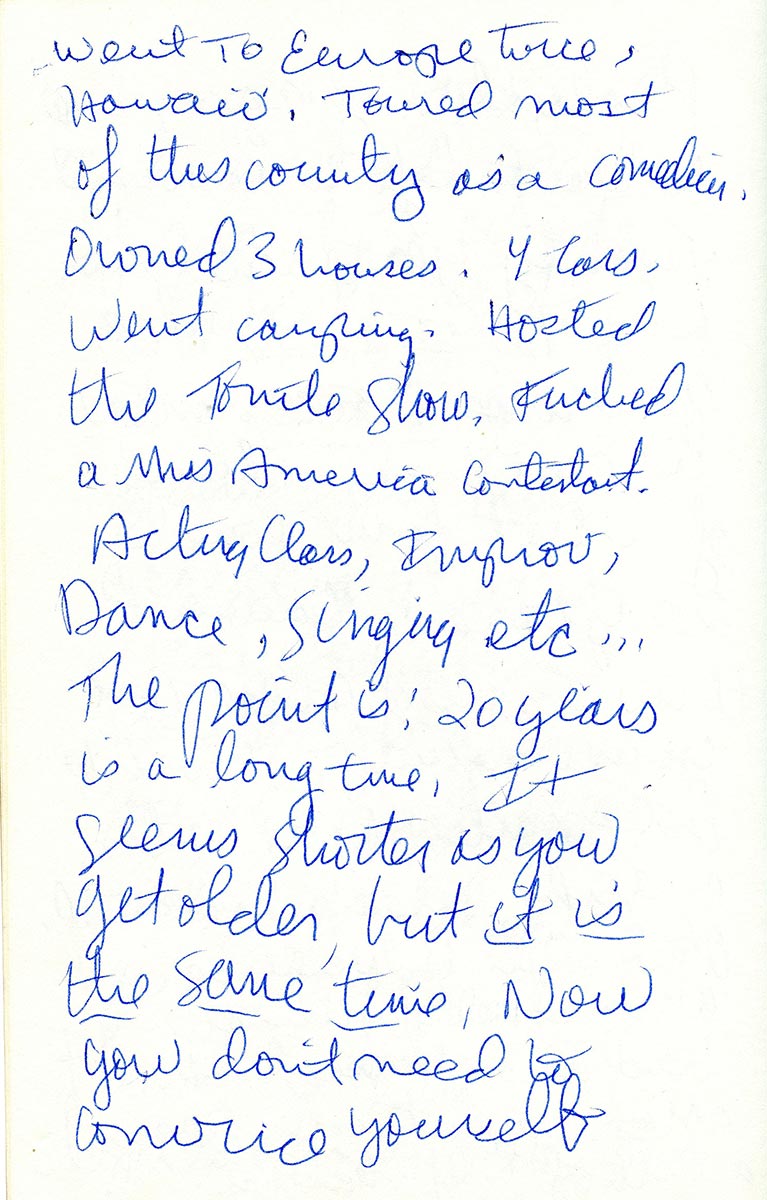 went To Europe twice,
Hawaii. Toured most
of this country as a comedien.
Owned 3 houses. 4 Cars.
Went camping. Hosted
the Tonite Show. Fucked
a Miss America Contestant.
Acting Class, Improv,
Dance, Singing etc...
The point is; 20 years
is a long time. It
seems shorter as you
get older, but it is
the same time. Now
you don't need to
convince yourself